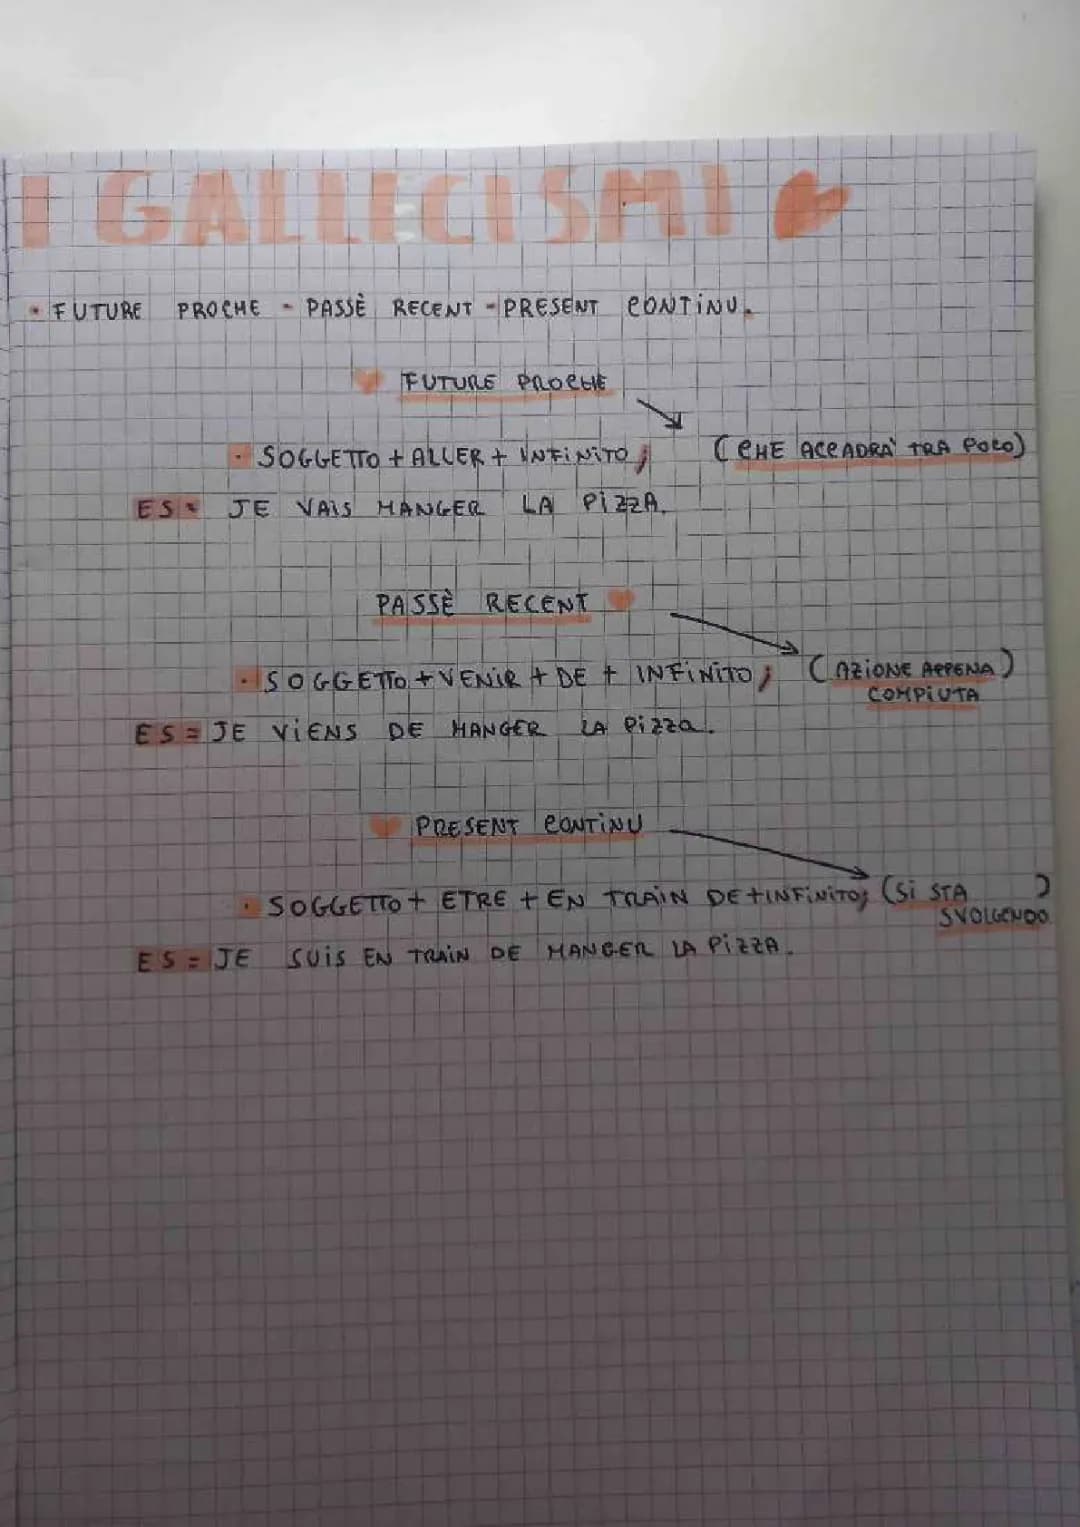 I GALLECISMI
• FUTURE PROCHE - PASSÈ RECENT - PRESENT CONTINU.
FUTURE PROCHE
• SOGGETTO + ALLER + INFINITO; (CHE ACCADRÀ TRA POCO)
ES= JE VAIS MANGER LA PIZZA.
PASSÈ RECENT
• SOGGETTO + VENIR + DE + INFINITO; (AZIONE APPENA)
COMPIUTA
ES= JE VIENS DE MANGER LA PIZZA.
PRESENT CONTINU
• SOGGETTO + ETRE + EN TRAIN DE + INFINITO; (SI STA )
SVOLGENDO
ES= JE SUIS EN TRAIN DE MANGER LA PIZZA.